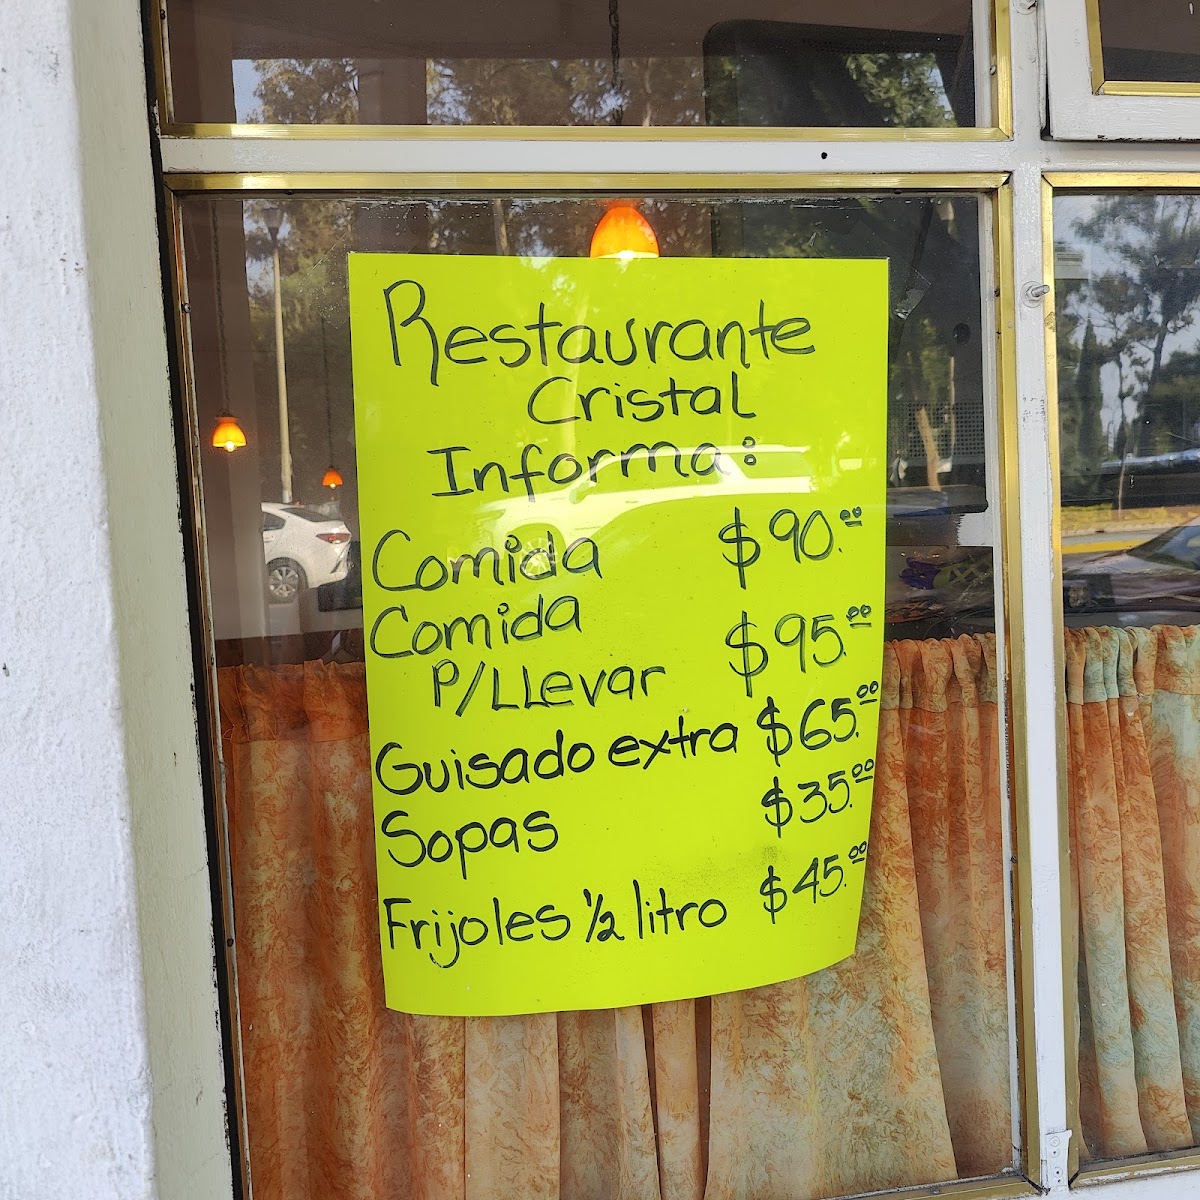 Restaurante
Cristal
Informa:
Comida $90.00
Comida
P/LLevar $95.00
Guisado extra $65.00
Sopas $35.00
Frijoles 1/2 litro $45.00